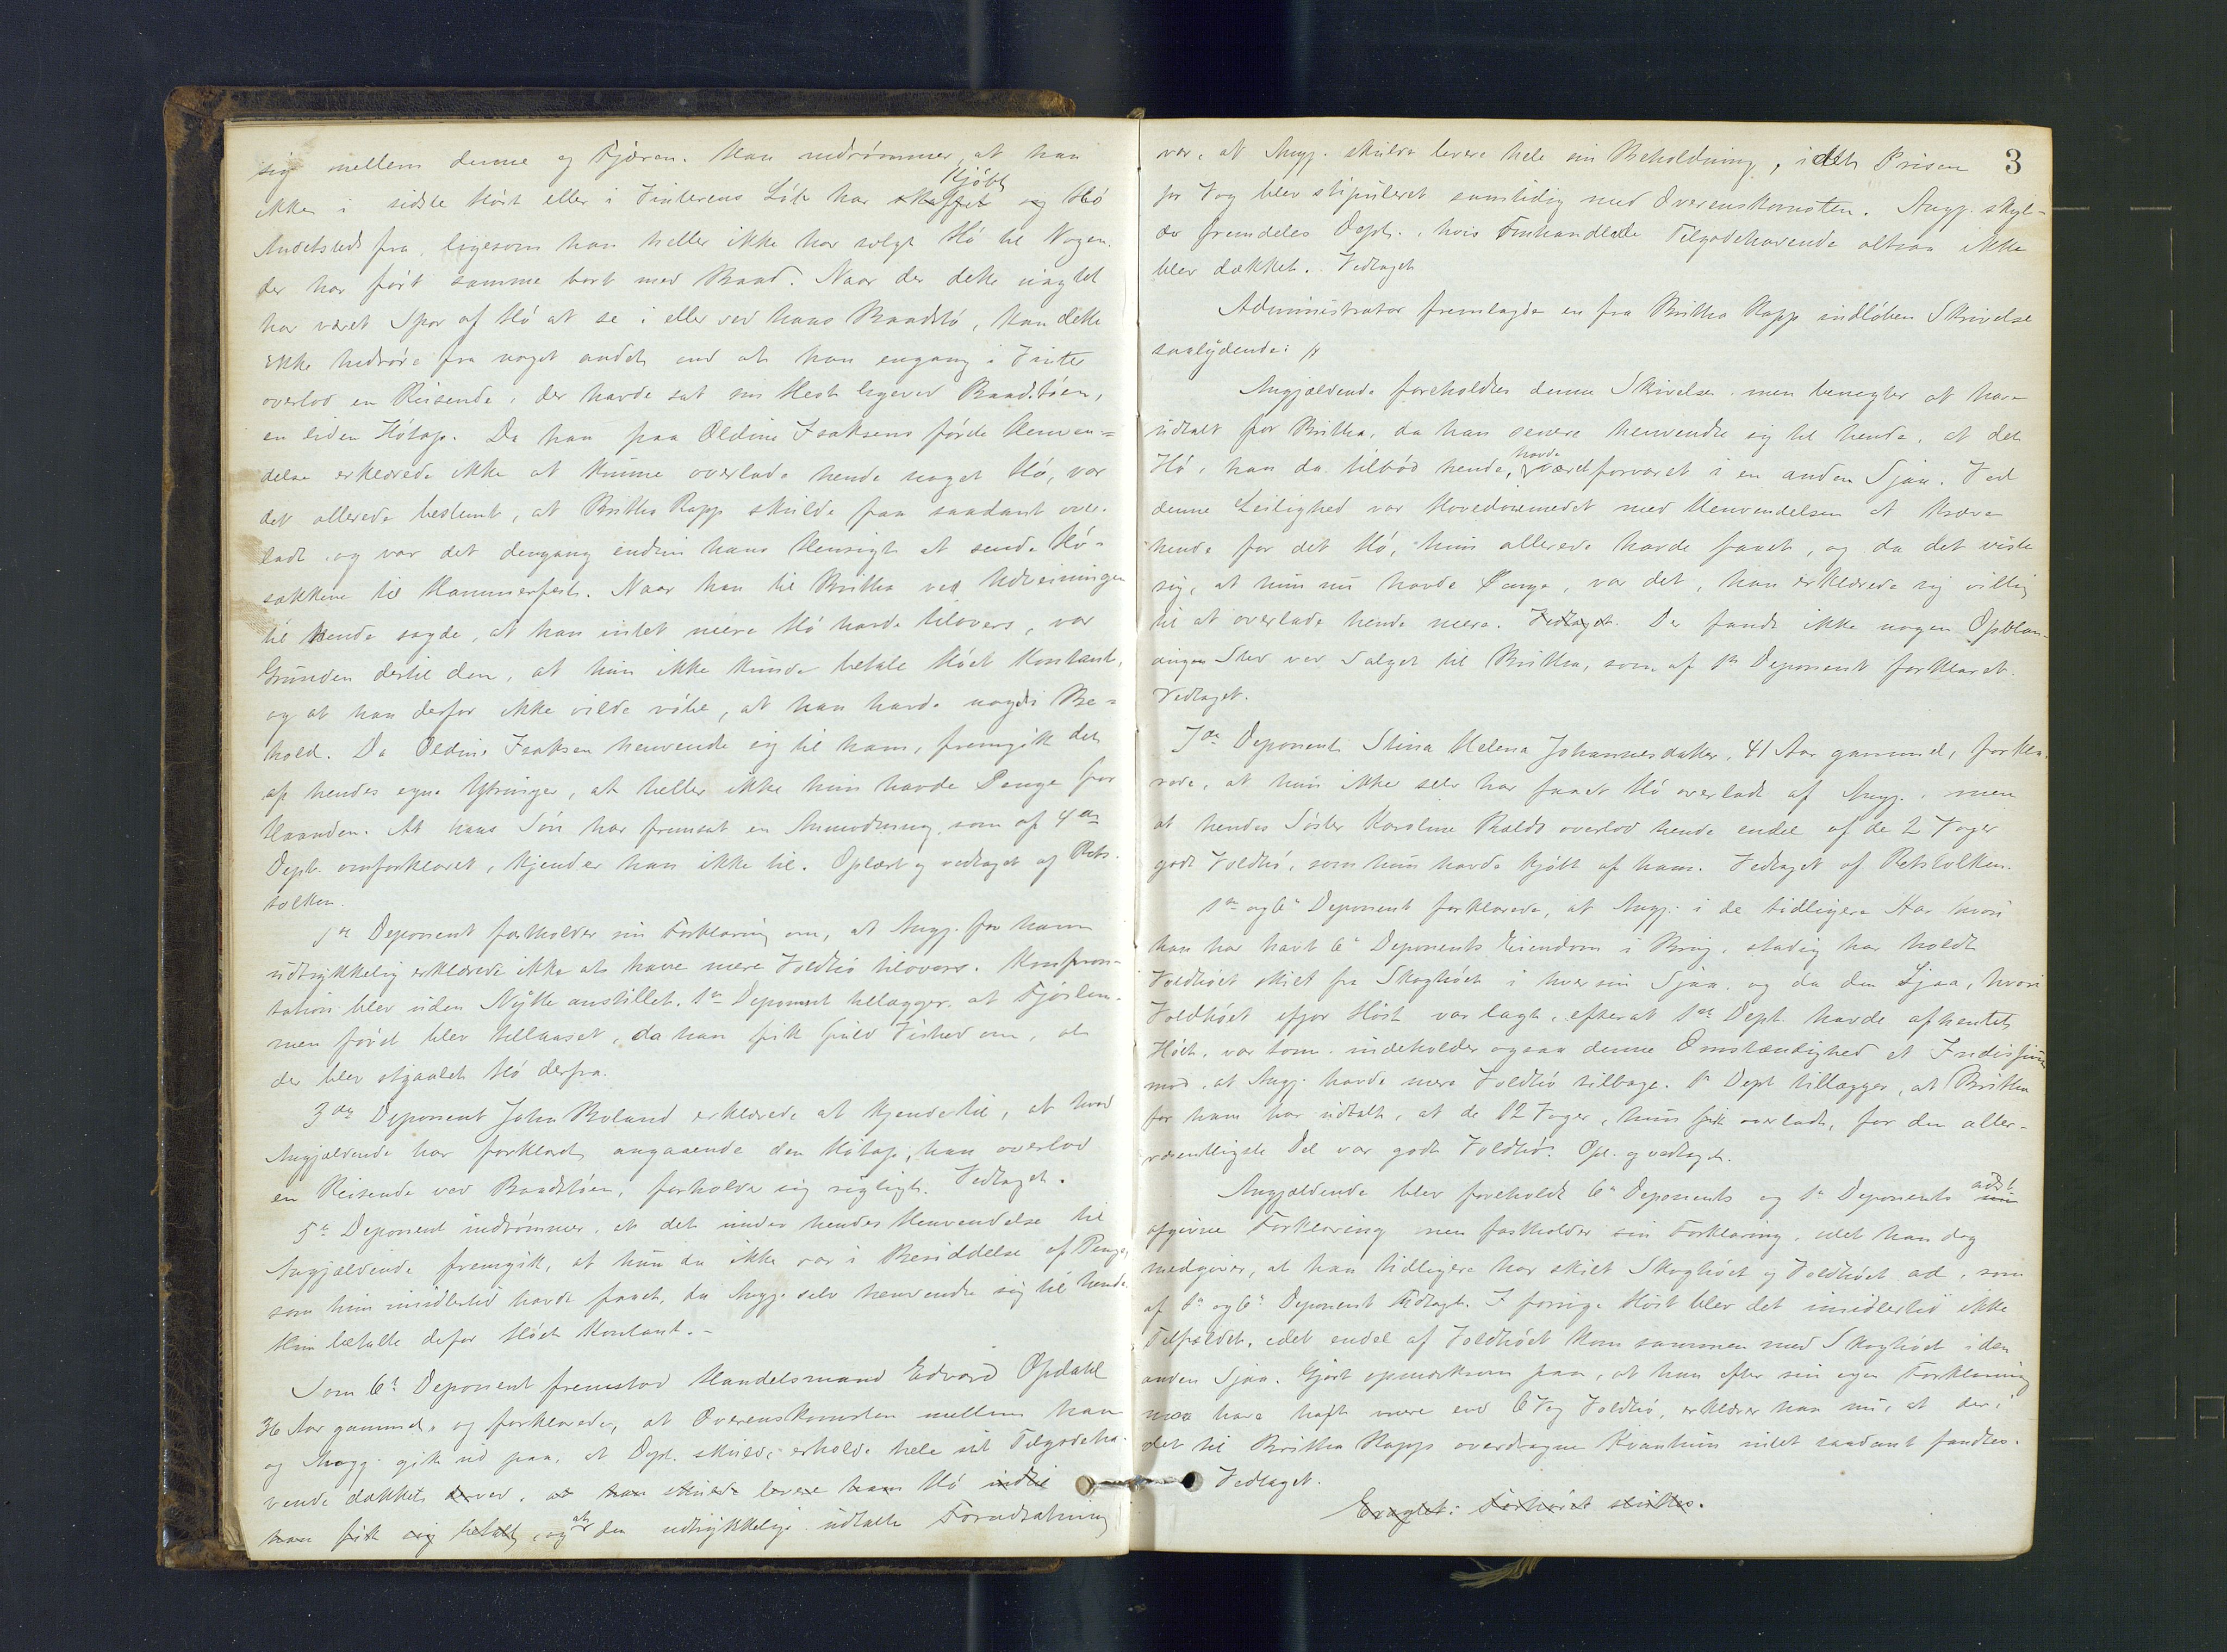 sig mellem denne og Fjæren. Han indrømmer, at han
ikke i sidste Høst eller i Vinterens Løb har skaffet Kjöbt sig Hö
Andetsteds fra, ligesom han heller ikke har solgt Hö til Nogen
der har fört samme bort med Baad. Naar der dette uagtet
har været Spor af Hö at se i eller ved hans Baadstö, kan dette
ikke hidröre fra noget andet end at han engang i Vinter
overlod en Reisende, der havde sat sin Hest ligeved Baadstöen,
en liden Hötap. Da han paa Oldine Isaksens förste Henven=
delse erklærede ikke at kunne overlade hende noget Hö, var
det allerede bestemt, at Britha Rapp skulde faa saadant over-
ladt og var det dengang endnu hans Hensigt at sende Hö=
sækkene til Hammerfest. Naar han til Britha ved Udveiningen
til hende sagde, at han intet mere Hö havde tilovers, var
Grunden dertil den, at hun ikke kunde betale Höet Kontant,
og at han derfor ikke vilde röbe, at han havde noget i Be=
hold. Da Oldine Isaksen henvendte sig til ham, fremgik det
af hendes egne Ytringer, at heller ikke hun havde Penge for
Haanden. At hans Sön har fremsat en Anmodning som af 4de
Dept. omforklaret, kjender han ikke til. Oplæst og vedtaget af Rets-
tolken.
1ste Deponent fastholder sin Forklaring om, at Angj. for ham
udtrykkelig erklærede ikke at have mere Voldhö tilovers. Konfron-
tation blev uden Nytte anstillet. 1ste Deponent tillægger, at Fjöslem-
men först blev tillaaset, da han fik fuld Vished om, at
der blev stjaalet Hö derfra.
3die Deponent John Boland erklærede at kjende til, at hvad
Angjældende har forklaret angaaende den Hötap, han overlod
en Reisende ved Baadstöen, forholder sig rigtigt. Vedtaget.
5te Deponent indrömmer, at det under hendes Henvendelse til
Angjældende fremgik, at hun da ikke var i Besiddelse af Penge,
som hun imidlertid havde faaet, da Angj. selv henvendte sig til hende.
Hun betalte derfor Höet Kontant.-
Som 6te Deponent fremstod Handelsmand Edvard Opdahl
36 Aar gammel, og forklarede, at Overenskomsten mellem ham
og Angj. gik ud paa, at Dept. skulde erholde hele sit Tilgodeha-
vende dækket derved, at han skulde levere ham Hö indtil
han fik sig betalt, og at den udtrykkelige udtalte Forudsætning
3
var, at Angj. skulde levere hele sin Beholdning, idet Prisen
pr Vog blev stipuleret samtidig med Overenskomsten. Angj. skyl=
der fremdeles Dept., hvis Tilgodehavende altsaa ikke
blev dækket. Vedtaget
Administrator fremlagde en fra Britha Rapp indlöben Skrivelse
saalydende:
Angjældende foreholdtes denne Skrivelse men benegter at have
udtalt for Britha, da han senere henvendte sig til hende, at det
Hö, han da tilböd hende, havde været forvaret i en anden Sjaa. Ved
denne Leilighed var Hovedöiemedet med Henvendelsen at kræve
hende for det Hö, hun allerede havde faaet, og da det viste
sig, at hun nu havde Penge, var det, han erklærede sig villig
til at overlade hende mere. Vedtaget. Der fandt ikke nogen Opblan-
dingen Sted ved Salget til Britha, som af 1ste Deponent forklaret.
Vedtaget.
7de Deponent Stina Helena Johannesdatter, 41 Aar gammel, forkla-
rede, at hun ikke selv har faaet Hö overladt af Angj., men
at hendes Söster Karoline overlod hende endel af de 2 Voger
godt Voldhö, som hun havde kjöbt af ham. Vedtaget af Retstolken.
1ste og 6te Deponent forklarede, at Angj. i de tidligere Aar hvori
han har havt 6te Deponents Eiendom i Brug, stadig har holdt
Voldhöet skilt fra Skoghöet i hver sin Sjaa, og da den Sjaa, hvori
Voldhöet ifjor Höst var lagt, efterat 1ste Dept. havde afhentet
Höet, var tom, indeholder ogsaa denne Omstændighed et Indicium
mod, at Angj. havde mere Voldhö tilbage. 1ste Dept tillægger, at Britha
for ham har udtalt, at de 12 Voger, hun fik overladt, for den aller-
væsentligste Del var godt Voldhö. Opl. og vedtaget.
Angjældende blev foreholdt 6te Deponents og 1ste Deponents sin sidst
afgivne Forklaring men fastholder sin Forklaring, idet han dog
medgiver, at han tidligere har skilt Skoghöet og Voldhöet ad, som
af 1ste og 6te Deponent vedtaget. I forrige Höst blev det imidlertid ikke
Tilfældet, idet endel af Voldhöet kom sammen med Skoghöet i den
anden Sjaa. Gjort opmærksom paa, at han efter sin egen Forklaring
maa have haft mere end 6 Vog Voldhö, erklærer han nu, at der i
det til Britha Rapps overdragne Kvantum intet saadant fandtes.
Vedtaget.
Eragtet: Forhöret sluttes.